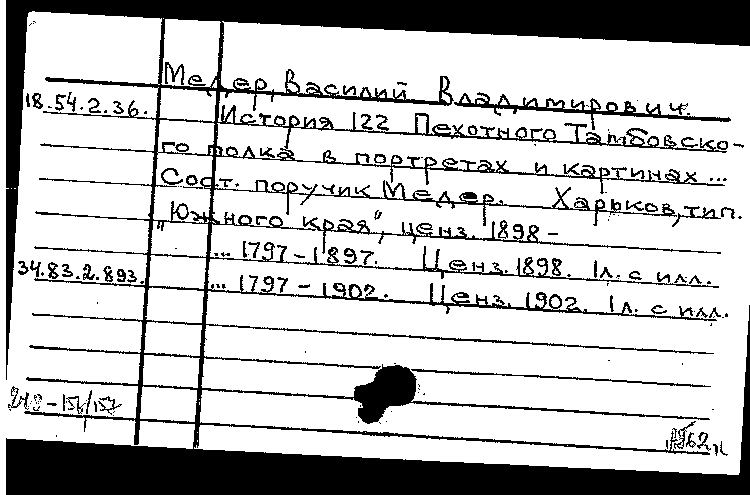 Медер, Василий Владимирович.
18.54.2.36. История 122 Пехотного Тамбовско-
го полка в портретах и картинах ...
Сост. поручик Медер. Харьков, тип.
„Южного края", ценз. 1898 -
... 1797-1897. Ценз. 1898. 1 л. с илл.
34.83.2.893. ... 1797 - 1902. Ценз. 1902. 1 л. с илл.